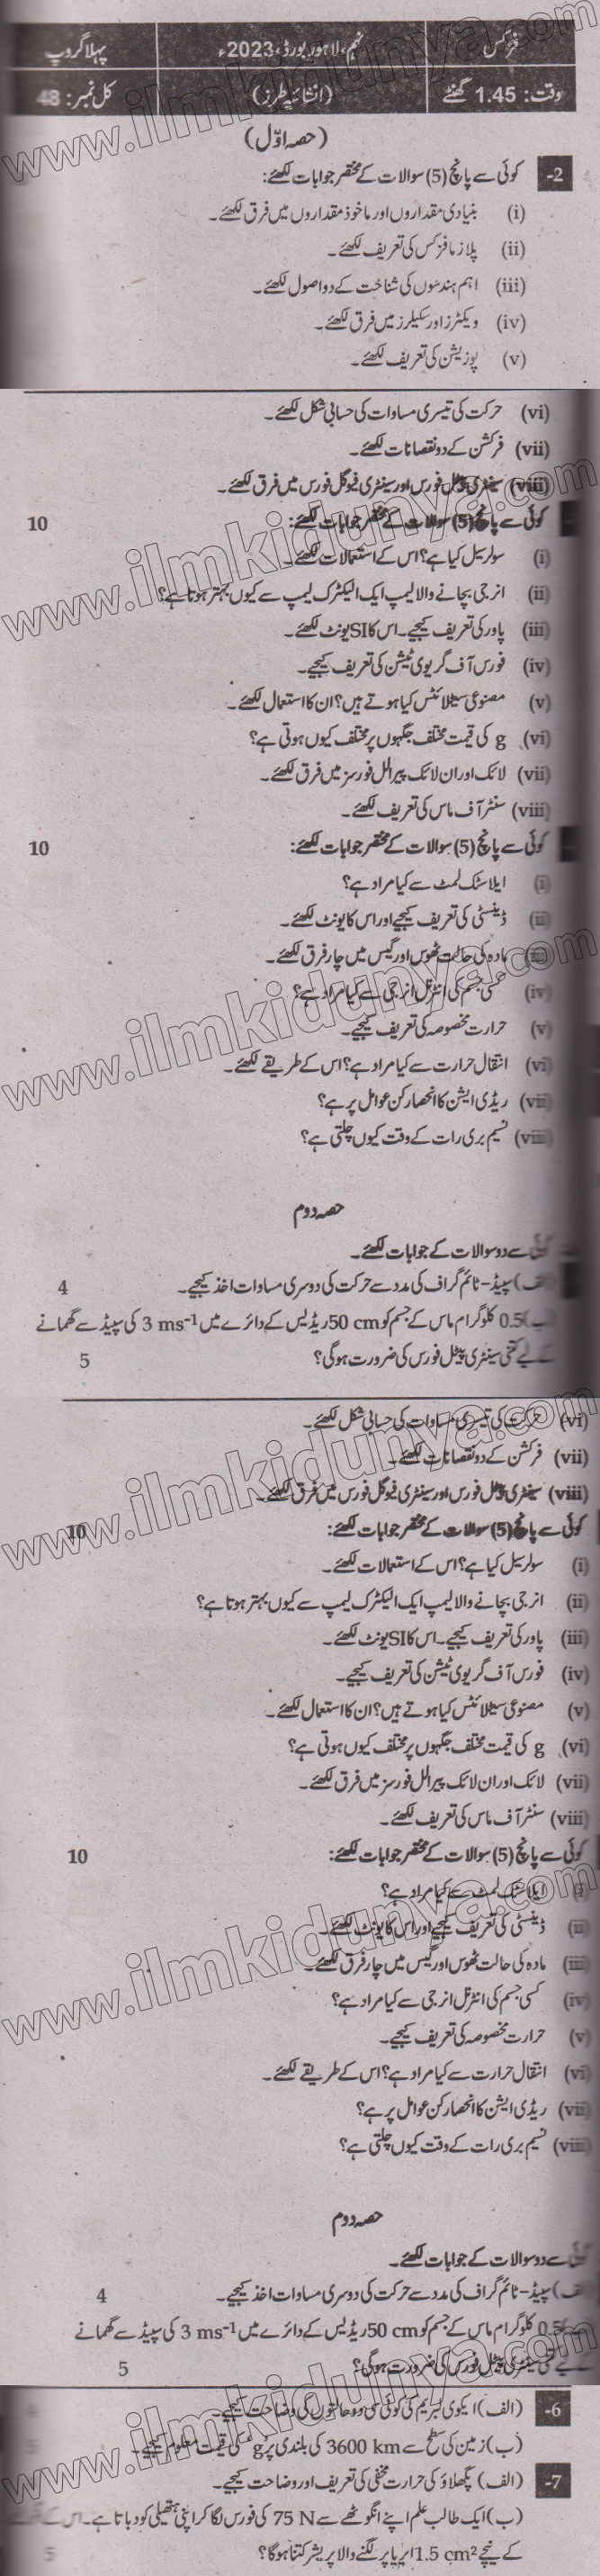 فزکس
نہم، لاہور بورڈ، 2023ء
پہلا گروپ
وقت: 1.45 گھنٹے
(انشائیہ طرز)
کل نمبر: 48
(حصہ اوّل)
2- کوئی سے پانچ (5) سوالات کے مختصر جوابات لکھئے:
(i) بنیادی مقداروں اور ماخوذ مقداروں میں فرق لکھئے۔
(ii) پلازما فزکس کی تعریف لکھئے۔
(iii) اہم ہندسوں کی شناخت کے دو اصول لکھئے۔
(iv) ویکٹرز اور سکیلرز میں فرق لکھئے۔
(v) پوزیشن کی تعریف لکھئے۔
(vi) حرکت کی تیسری مساوات کی حسابی شکل لکھئے۔
(vii) فرکشن کے دو نقصانات لکھئے۔
(viii) سینٹری پیٹل فورس اور سینٹری فیوگل فورس میں فرق لکھئے۔
کوئی سے پانچ (5) سوالات کے مختصر جوابات لکھئے: 10
(i) سولر سیل کیا ہے؟ اس کے استعمالات لکھئے۔
(ii) انرجی بچانے والا لیمپ ایک الیکٹرک لیمپ سے کیوں بہتر ہوتا ہے؟
(iii) پاور کی تعریف کیجیے۔ اس کا SI یونٹ لکھئے۔
(iv) فورس آف گریوی ٹیشن کی تعریف کیجیے۔
(v) مصنوعی سیٹلائٹس کیا ہوتے ہیں؟ ان کا استعمال لکھئے۔
(vi) g کی قیمت مختلف جگہوں پر مختلف کیوں ہوتی ہے؟
(vii) لائک اور ان لائک پیرالل فورسز میں فرق لکھئے۔
(viii) سنٹر آف ماس کی تعریف لکھئے۔
کوئی سے پانچ (5) سوالات کے مختصر جوابات لکھئے: 10
(i) ایلاسٹک لمٹ سے کیا مراد ہے؟
(ii) ڈینسٹی کی تعریف کیجیے اور اس کا یونٹ لکھئے۔
(iii) مادہ کی حالت ٹھوس اور گیس میں چار فرق لکھئے۔
(iv) کسی جسم کی انٹرنل انرجی سے کیا مراد ہے؟
(v) حرارت مخصوصہ کی تعریف کیجیے۔
(vi) انتقال حرارت سے کیا مراد ہے؟ اس کے طریقے لکھئے۔
(vii) ریڈی ایشن کا انحصار کن عوامل پر ہے؟
(viii) نسیم بری رات کے وقت کیوں چلتی ہے؟
حصہ دوم
کوئی سے دو سوالات کے جوابات لکھئے۔
(الف) سپیڈ-ٹائم گراف کی مدد سے حرکت کی دوسری مساوات اخذ کیجیے۔ 4
(ب) 0.5 کلوگرام ماس کے جسم کو 50 cm ریڈیس کے دائرے میں 3 ms⁻¹ کی سپیڈ سے گھمانے
کے لیے کتنی سینٹری پیٹل فورس کی ضرورت ہوگی؟ 5
(vi) حرکت کی تیسری مساوات کی حسابی شکل لکھئے۔
(vii) فرکشن کے دو نقصانات لکھئے۔
(viii) سینٹری پیٹل فورس اور سینٹری فیوگل فورس میں فرق لکھئے۔
کوئی سے پانچ (5) سوالات کے مختصر جوابات لکھئے: 10
(i) سولر سیل کیا ہے؟ اس کے استعمالات لکھئے۔
(ii) انرجی بچانے والا لیمپ ایک الیکٹرک لیمپ سے کیوں بہتر ہوتا ہے؟
(iii) پاور کی تعریف کیجیے۔ اس کا SI یونٹ لکھئے۔
(iv) فورس آف گریوی ٹیشن کی تعریف کیجیے۔
(v) مصنوعی سیٹلائٹس کیا ہوتے ہیں؟ ان کا استعمال لکھئے۔
(vi) g کی قیمت مختلف جگہوں پر مختلف کیوں ہوتی ہے؟
(vii) لائک اور ان لائک پیرالل فورسز میں فرق لکھئے۔
(viii) سنٹر آف ماس کی تعریف لکھئے۔
کوئی سے پانچ (5) سوالات کے مختصر جوابات لکھئے: 10
(i) ایلاسٹک لمٹ سے کیا مراد ہے؟
(ii) ڈینسٹی کی تعریف کیجیے اور اس کا یونٹ لکھئے۔
(iii) مادہ کی حالت ٹھوس اور گیس میں چار فرق لکھئے۔
(iv) کسی جسم کی انٹرنل انرجی سے کیا مراد ہے؟
(v) حرارت مخصوصہ کی تعریف کیجیے۔
(vi) انتقال حرارت سے کیا مراد ہے؟ اس کے طریقے لکھئے۔
(vii) ریڈی ایشن کا انحصار کن عوامل پر ہے؟
(viii) نسیم بری رات کے وقت کیوں چلتی ہے؟
حصہ دوم
کوئی سے دو سوالات کے جوابات لکھئے۔
(الف) سپیڈ-ٹائم گراف کی مدد سے حرکت کی دوسری مساوات اخذ کیجیے۔ 4
0.5 کلوگرام ماس کے جسم کو 50 cm ریڈیس کے دائرے میں 3 ms⁻¹ کی سپیڈ سے گھمانے
کے لیے کتنی سینٹری پیٹل فورس کی ضرورت ہوگی؟ 5
6- (الف) ایکوی لبریم کی کوئی سی دو حالتوں کی وضاحت کیجیے۔ 4
(ب) زمین کی سطح سے 3600 km کی بلندی پر g کی قیمت معلوم کیجیے۔ 5
7- (الف) پگھلاؤ کی حرارت مخفی کی تعریف اور وضاحت کیجیے۔
(ب) ایک طالب علم اپنے انگوٹھے سے 75 N کی فورس لگا کر اپنی ہتھیلی کو دباتا ہے۔ اس کے انگوٹھے
کے نیچے 1.5 cm² ایریا پر لگنے والا پریشر کتنا ہوگا؟ 5
www.ilmkidunya.com
www.ilmkidunya.com
www.ilmkidunya.com
www.ilmkidunya.com
www.ilmkidunya.com
www.ilmkidunya.com